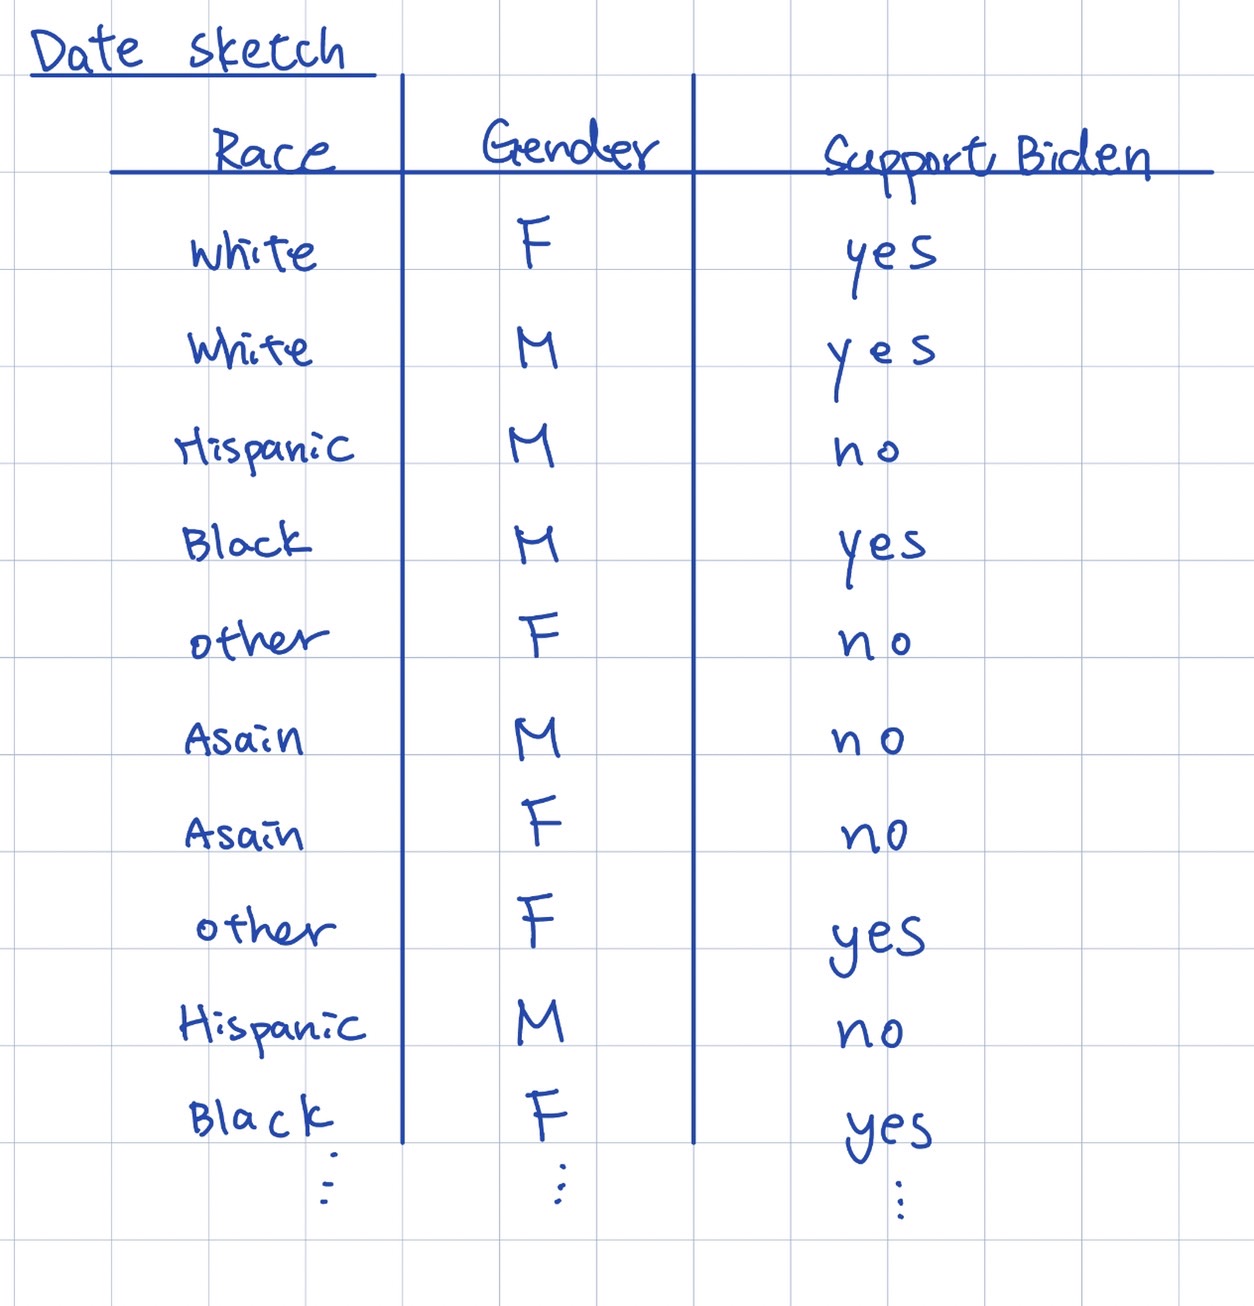 Date sketch
Race Gender Support Biden
white F yes
white M yes
Hispanic M no
Black M yes
other F no
Asain M no
Asain F no
other F yes
Hispanic M no
Black F yes
⋮ ⋮ ⋮